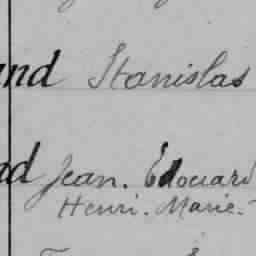 and Stanislas
ad Jean. Edouard
Henri. Marie.